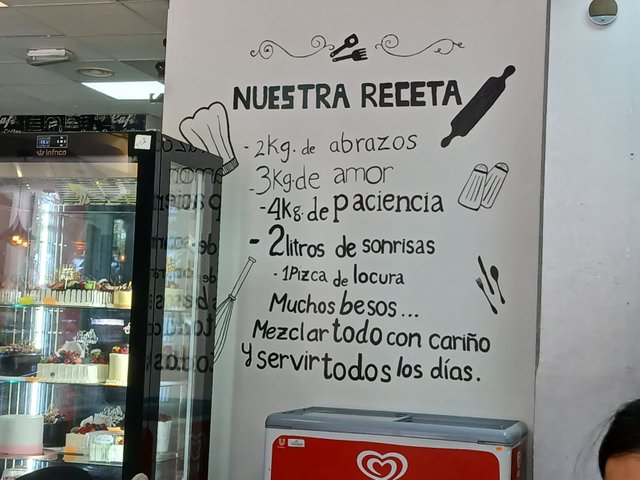 NUESTRA RECETA
- 2kg. de abrazos
- 3kg. de amor
- 4kg. de paciencia
- 2 litros de sonrisas
- 1 Pizca de locura
Muchos besos...
Mezclar todo con cariño
y servir todos los días.
infrico